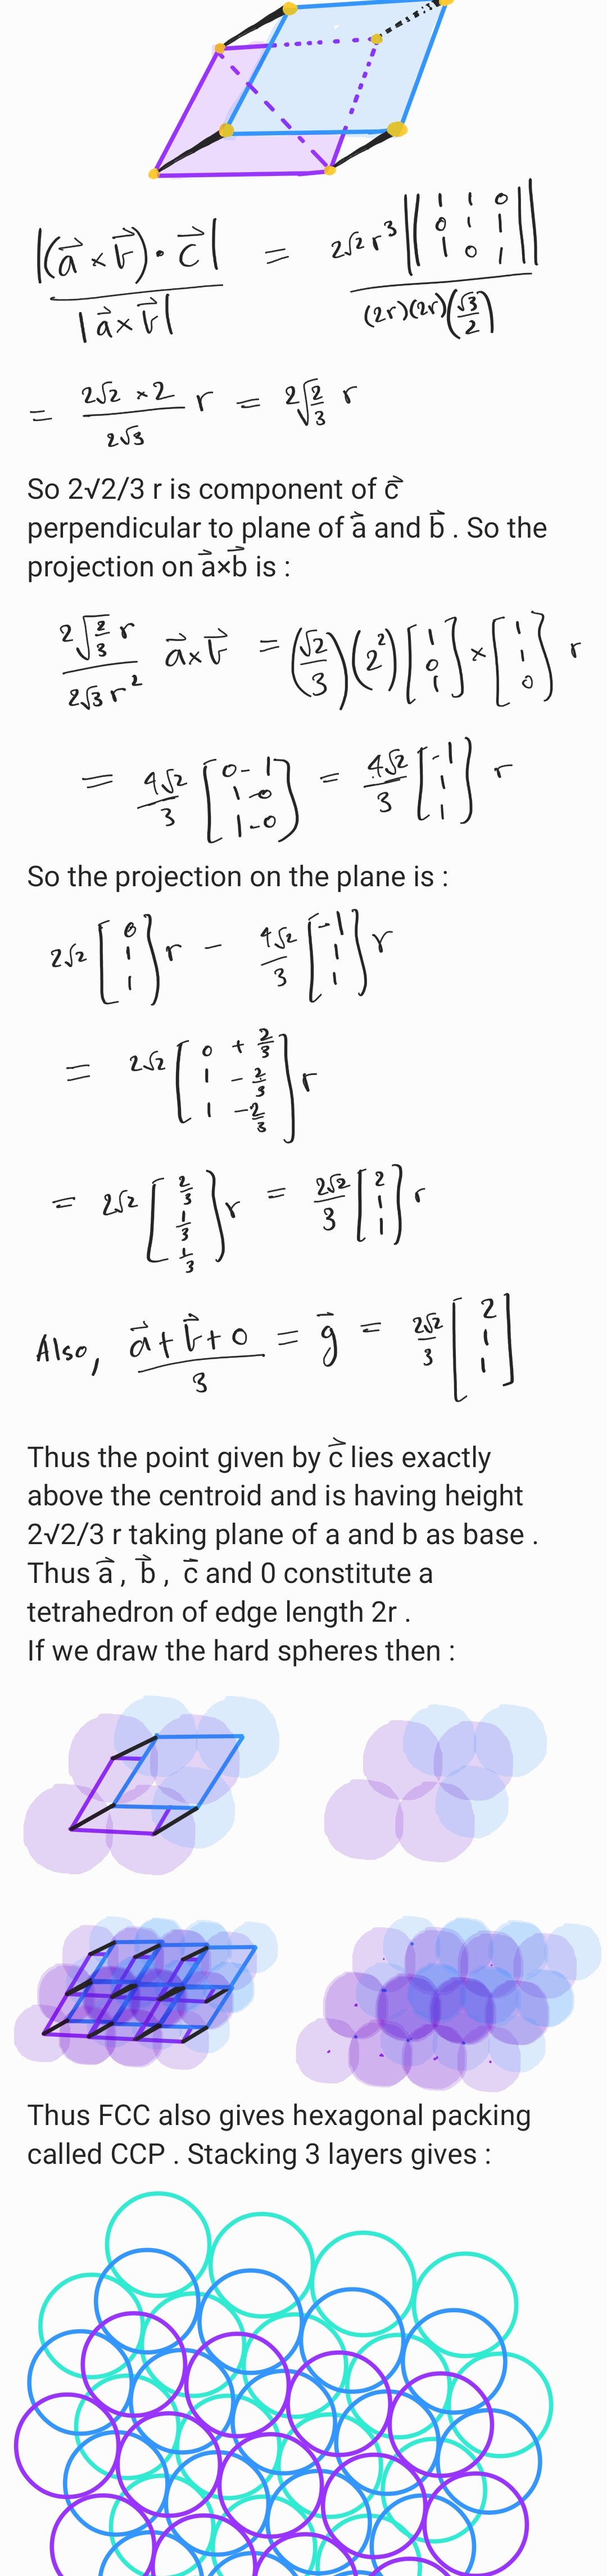 |(a⃗ × b⃗) · c⃗| / |a⃗ × b⃗| = 2√2 r³ || 1 1 0 ; 0 1 1 ; 1 0 1 || / (2r)(2r)(√3/2)
= (2√2 × 2 / 2√3) r = 2√(2/3) r
So 2√2/3 r is component of c⃗
perpendicular to plane of a⃗ and b⃗ . So the
projection on a⃗×b⃗ is :
(2√(2/3) r / 2√3 r²) a⃗×b⃗ = (√2/3)(2²) [1 0 1] × [1 1 0] r
= 4√2/3 [0-1 1-0 1-0] = 4√2/3 [-1 1 1] r
So the projection on the plane is :
2√2 [0 1 1] r - 4√2/3 [-1 1 1] r
= 2√2 [0 + 2/3 1 - 2/3 1 - 2/3] r
= 2√2 [2/3 1/3 1/3] r = 2√2/3 [2 1 1] r
Also, (a⃗ + b⃗ + 0)/3 = g⃗ = 2√2/3 [2 1 1]
Thus the point given by c⃗ lies exactly
above the centroid and is having height
2√2/3 r taking plane of a and b as base .
Thus a⃗ , b⃗ , c⃗ and 0 constitute a
tetrahedron of edge length 2r .
If we draw the hard spheres then :
Thus FCC also gives hexagonal packing
called CCP . Stacking 3 layers gives :